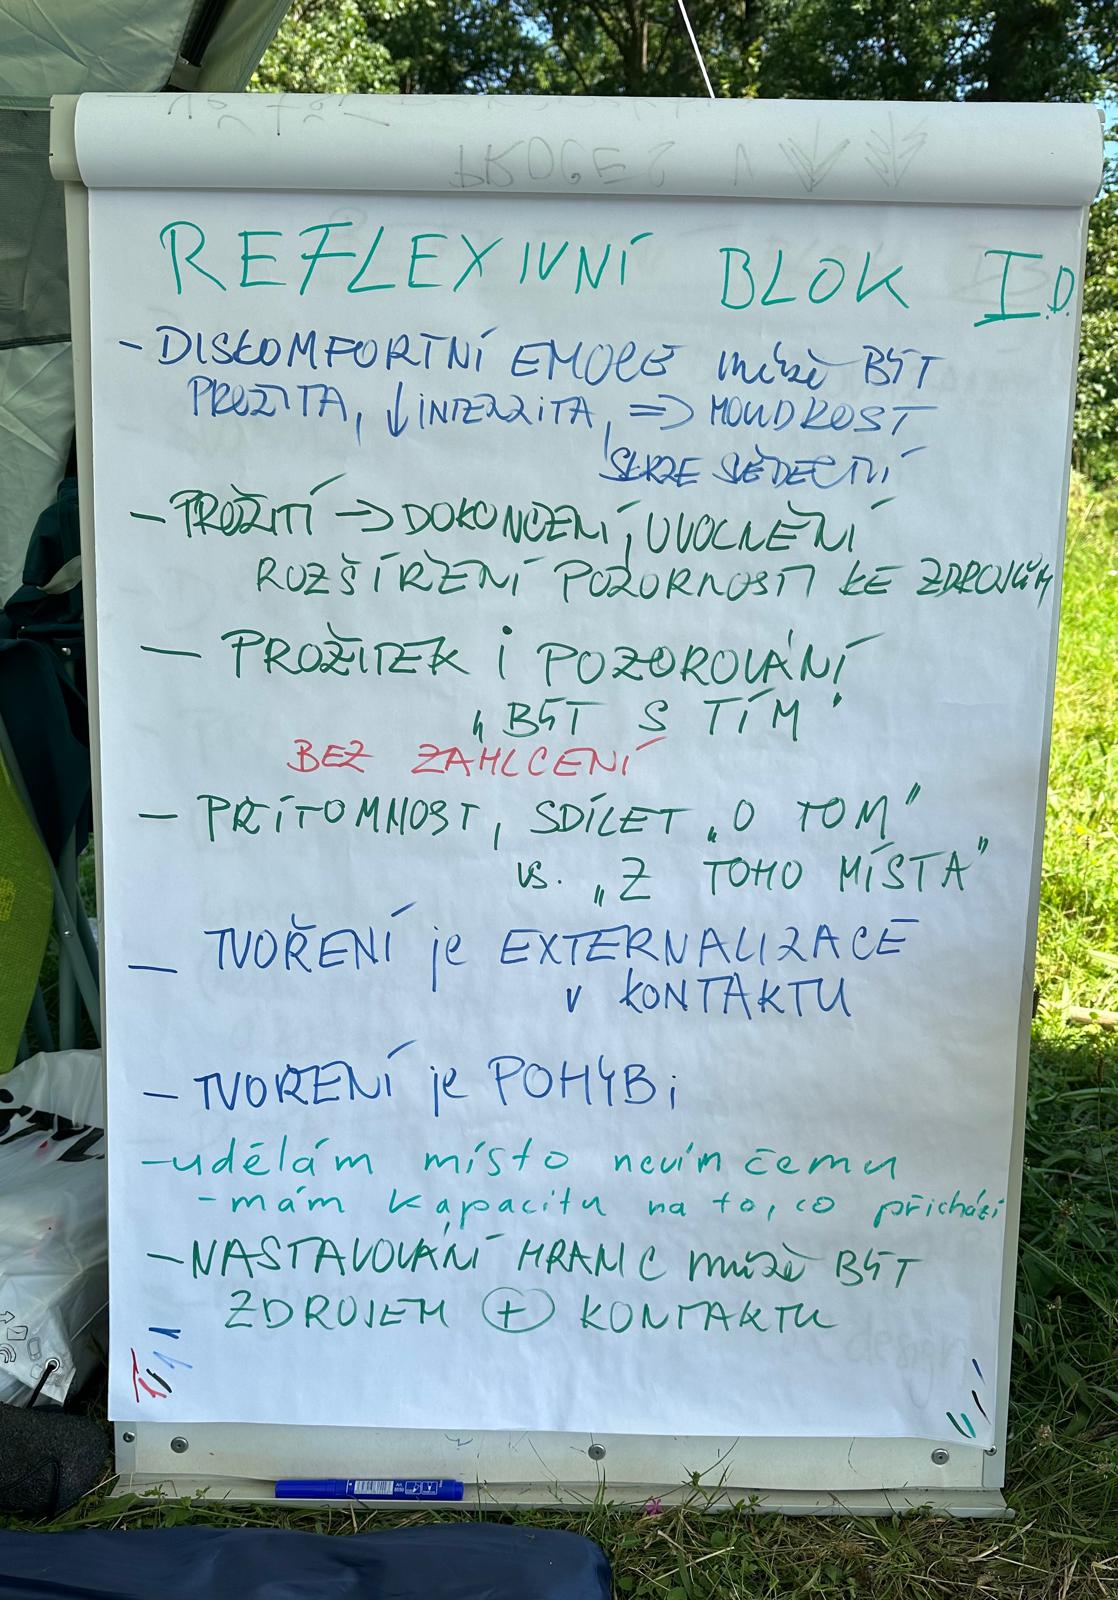 PROCES V
REFLEXIVNÍ BLOK I.D.
- DISKOMFORTNÍ EMOCE může BÝT
PROŽITA, ↓ INTENZITA, => MOUDROST
SKRZE SVĚDECTVÍ
- PROŽITÍ -> DOKONČENÍ, UVOLNĚNÍ
ROZŠÍŘENÍ POZORNOSTI KE ZDROJŮM
- PROŽITEK i POZOROVÁNÍ
"BÝT S TÍM"
BEZ ZAHLCENÍ
- PŘÍTOMNOST, SDÍLET "O TOM"
vs. "Z TOHO MÍSTA"
- TVOŘENÍ je EXTERNALIZACE
v KONTAKTU
- TVOŘENÍ je POHYB i
- udělám místo nevím čemu
- mám kapacitu na to, co přichází
- NASTAVOVÁNÍ HRANIC může BÝT
ZDROJEM + KONTAKTU